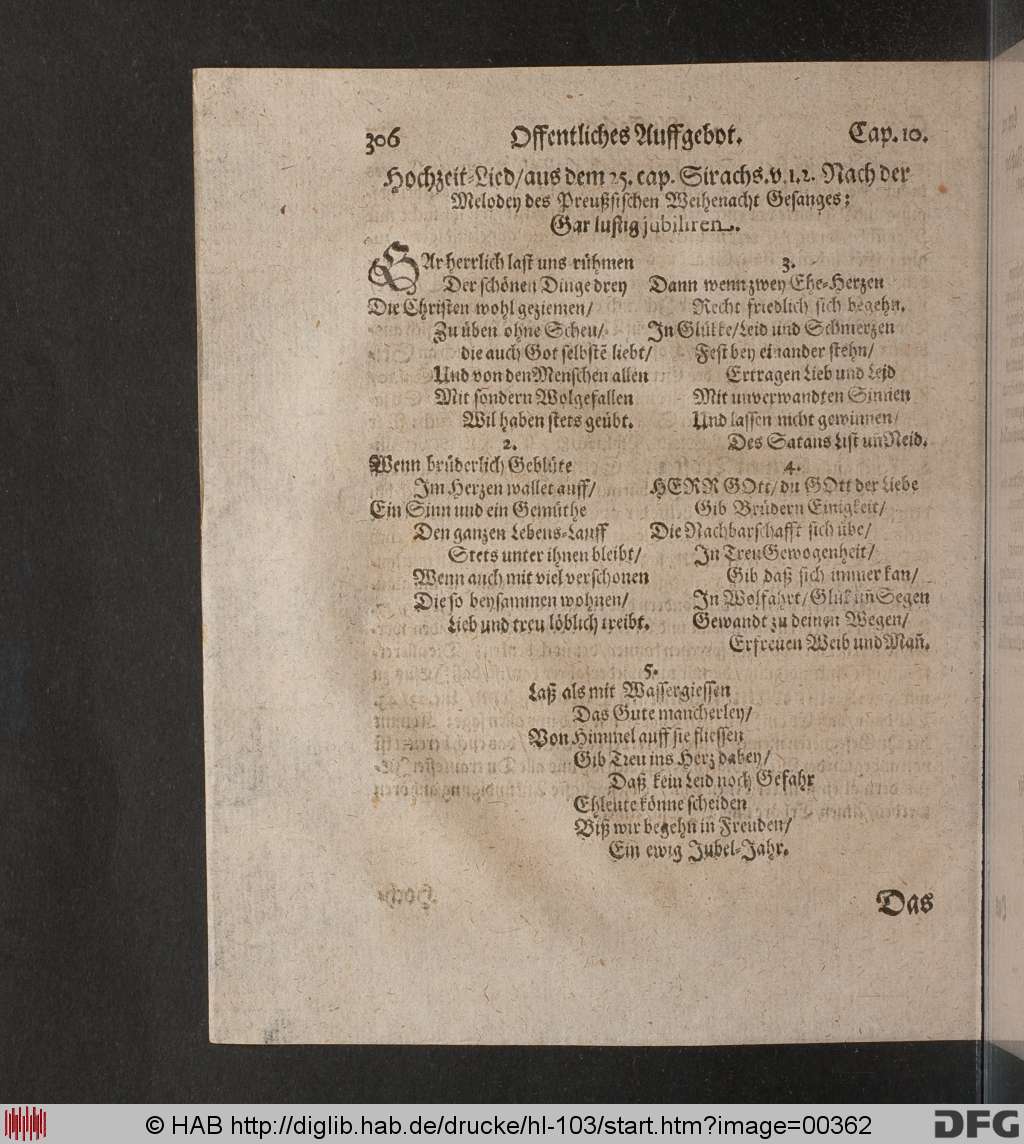 306 Offentliches Auffgebot. Cap. 10.
Hochzeit-Lied/aus dem 25. cap. Sirachs. v. 1. 2. Nach der
Melodey des Preußsischen Weihenacht Gesanges:
Gar lustig jubiliren.
GAr herrlich last uns rühmen
Der schönen Dinge drey
Die Christen wohl geziemen/
Zu üben ohne Scheu/
die auch Got selbstē liebt/
Und von den Menschen allen
Mit sondern Wolgefallen
Wil haben stets geübt.
2.
Wenn brüderlich Geblüte
Im Herzen wallet auff/
Ein Sinn und ein Gemüthe
Den ganzen Lebens-Lauff
Stets unter ihnen bleibt/
Wenn auch mit viel verschonen
Die so beysammen wohnen/
Lieb und treu löblich treibt.
3.
Dann wenn zwey Ehe-Herzen
Recht friedlich sich begehn.
In Glükke/Leid und Schmerzen
Fest bey einander stehn/
Ertragen Lieb und Leid
Mit unverwandten Sinnen
Und lassen nicht gewinnen/
Des Satans List uñ Neid.
4.
HERR GOtt/du GOtt der Liebe
Gib Brüdern Einigkeit/
Die Nachbarschafft sich übe/
In Treu Gewogenheit/
Gib daß sich immer kan/
In Wolfahrt/Glük uñ Segen
Gewandt zu deinen Wegen/
Erfreuen Weib und Mañ.
5.
Laß als mit Wassergiessen
Das Gute mancherley/
Von Himmel auff sie fliessen
Gib Treu ins Herz dabey/
Daß kein Leid noch Gefahr
Ehleute könne scheiden
Biß wir begehn in Freuden/
Ein ewig Jubel-Jahr.
Das
© HAB http://diglib.hab.de/drucke/hl-103/start.htm?image=00362
DFG